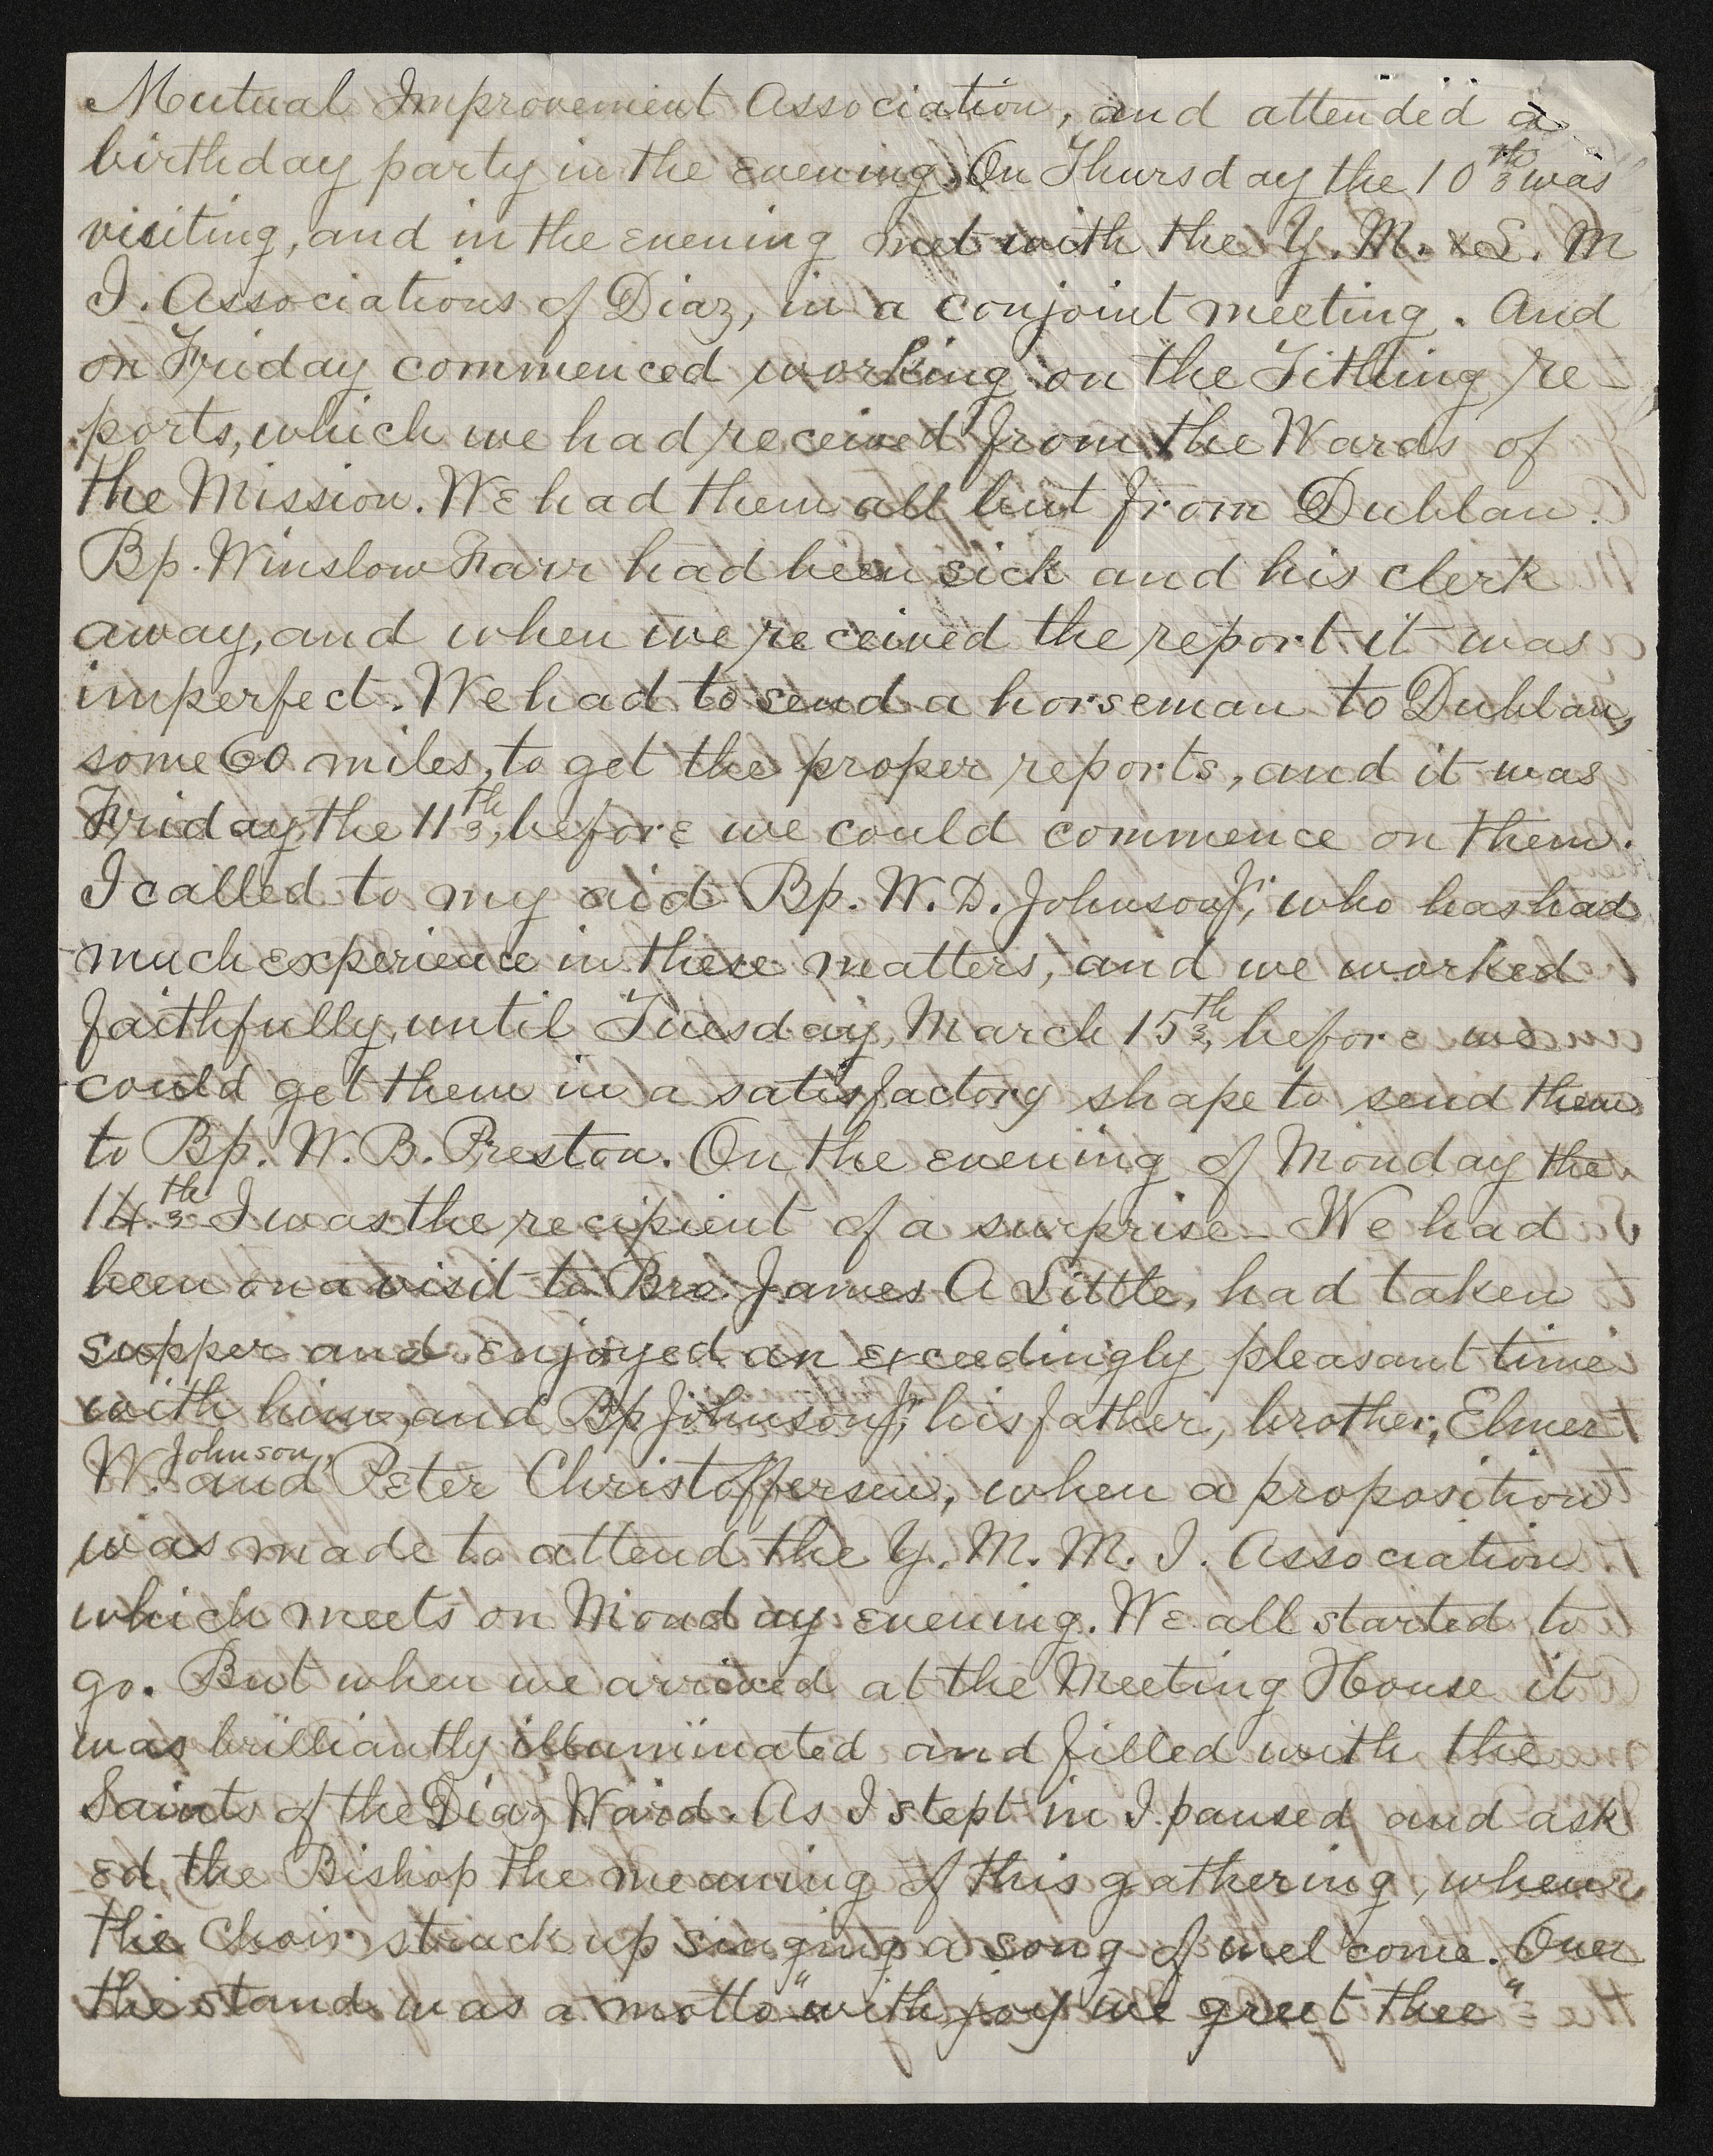 Mutual Improvement Association, and attended a
birthday party in the evening. On Thursday the 10th was
visiting, and in the evening met with the Y. M. & L. M
I. Associations of Diaz, in a conjoint meeting. And
on Friday commenced working on the Tithing re-
ports, which we had received from the Wards of
the Mission. We had them all but from Dublan.
Bp. Winslow Farr had been sick and his clerk
away, and when we received the report it was
imperfect. We had to send a horseman to Dublan,
some 60 miles, to get the proper reports, and it was
Friday, the 11th, before we could commence on them.
I called to my aid Bp. W. D. Johnson Jr, who has had
much experience in these matters, and we worked
faithfully, until Tuesday, March 15th, before we
could get them in a satisfactory shape to send them
to Bp. W. B. Preston. On the evening of Monday the
14th I was the recipient of a surprise- We had
been on a visit to Bro. James A Little, had taken
supper and enjoyed an exceedingly pleasant time
with him, and Bp Johnson Jr, his father, brother, Elmer
W. Johnson, and Peter Christoffersen, when a proposition
was made to attend the Y. M. M. I. Association
which meets on Monday evening. We all started to
go. But when we arrived at the Meeting House it
was brilliantly illuminated and filled with the
Saints of the Diaz Ward. As I stept in I paused and ask
ed the Bishop the meaning of this gathering, when
the Choir struck up singing a song of welcome. Over
the stand was a motto "with joy we greet thee"-